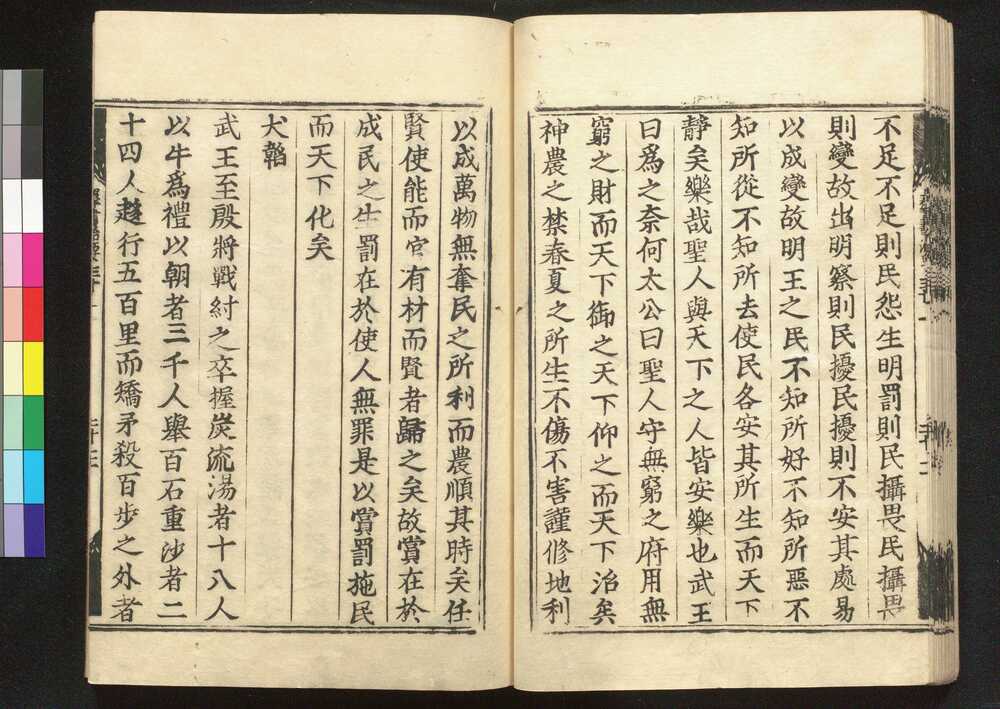 不足不足則民怨生明罰則民攝畏民攝畏
則變故出明察則民擾民擾則不安其處易
以成變故明王之民不知所好不知所惡不
知所從不知所去使民各安其所生而天下
靜矣樂哉聖人與天下之人皆安樂也武王
曰爲之奈何太公曰聖人守無窮之府用無
窮之財而天下御之天下仰之而天下治矣
神農之禁春夏之所生不傷不害謹修地利
以成萬物無奪民之所利而農順其時矣任
賢使能而官有材而賢者歸之矣故賞在於
成民之生罰在於使人無罪是以賞罰施民
而天下化矣
犬韜
武王至殷將戰紂之卒握炭流湯者十八人
以牛爲禮以朝者三千人舉百石重沙者二
十四人趍行五百里而矯矛殺百步之外者